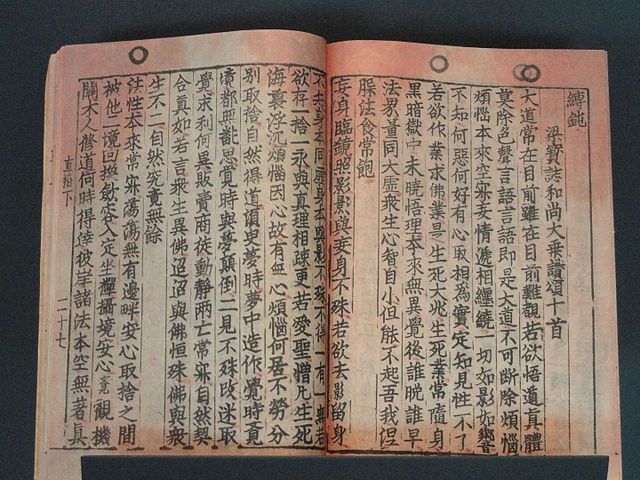 縛鈍
梁寶誌和尚大乗讃頌十首
大道常在目前雖在目前難覩若欲悟道真體
莫除色聲言語言語即是大道不可斷除煩惱
煩惱本來空寂妄情遞相纏繞一切如影如響
不知何惡何好有心取相為實定知見性不了
若欲作業求佛業是生死大兆生死業常隨身
黒暗獄中未曉悟理本來無異覺後誰晩誰早
法界量同大虛衆生心智自小但能不起吾我涅
槃法食常飽
妄身臨鏡照影影與妄身不殊若欲去影留身
不知身本同虛身本與影不殊不得一有一無若
欲存一捨一永與真理相踈更若愛聖憎凡生死
海裏浮沉煩惱因心故有無心煩惱何居不勞分
别取捨自然得道湏臾夢時夢中造作覺時覺
境都無飜思覺時與夢顛倒二見不殊改迷取
覺求利何異販賣商徒動靜兩亡常寂自然契
合真如若言衆生異佛迢迢與佛恒殊佛與衆
生不二自然究竟無餘
法性本來常寂蕩蕩無有邊畔安心取捨之間
被他二境回換歛容入定坐禪攝境安心覺觀機
關木人修道何時得達彼岸諸法本空無著真
直指下 二十七